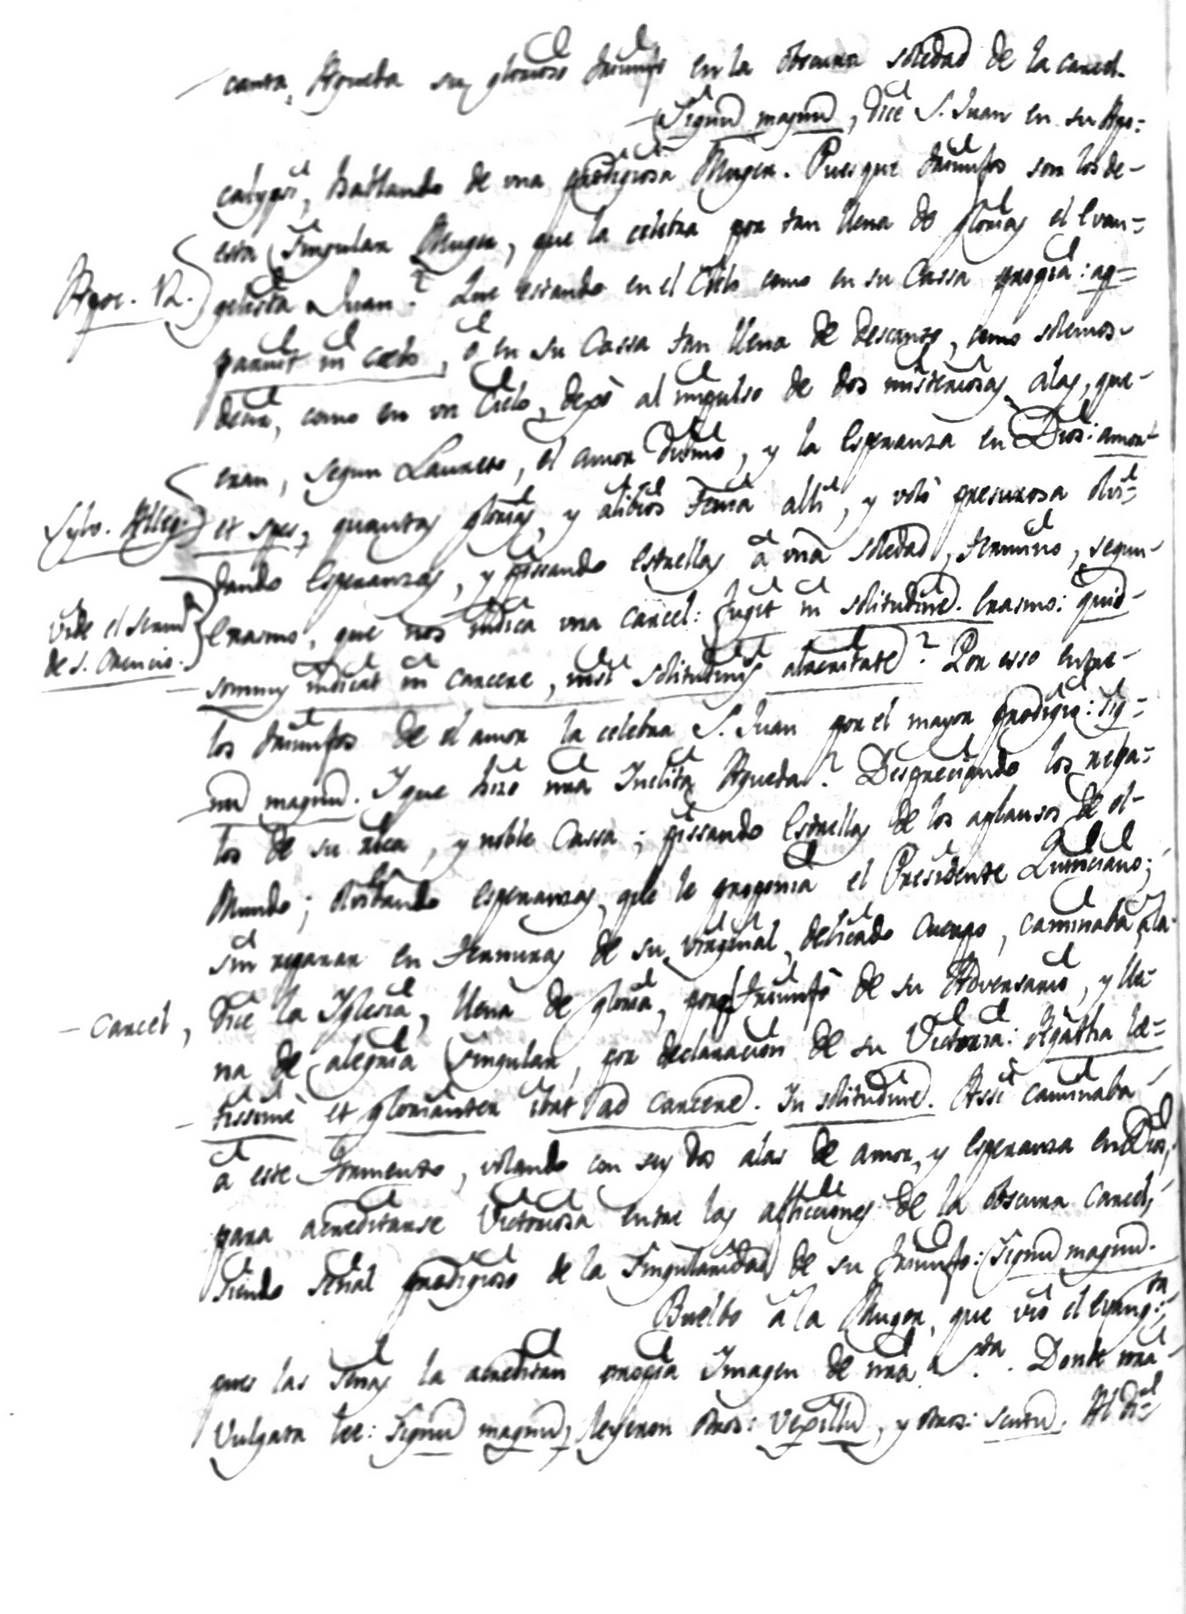 canta, Agueda sus glorioso triumfo en la obscura soledad de la carcel.
Signũ magnũ, dice S. Juan en su Apo=
calypsi, hablando de una prodigiosa Muger. Pues que triumfos son los de-
esta singular Muger, que la celebra por tan llena de glorias el Evan=
Apoc. 12.
gelista Juan? Que estando en el Cielo como en su Cassa propia: ap=
paruit in cœlo, ó en su Cassa tan llena de descanso, como solemos-
decir, como en un Cielo, dexó al impulso de dos misteriosas alas, que-
eran, segun Laureto, el amor Divino, y la Esperanza en Dios: amor-
Sylv. Alleg.
et spes, quantas glorias, y alibios tenia alli, y voló presurosa olvi=
dando Esperanzas, y pissando Estrellas á una soledad, termino, segun-
vide el Sermõ
de S. Orencio.
Erasmo, que nos indica una carcel: fugit in solitudinẽ. Erasmo: quid-
somnus indicat in carcere, nisi solitudinis
? Por esso entre-
los triumfos de el amor la celebra S. Juan por el mayor prodigio: Sig=
nũ magnũ. Y que hizo nr̃a Inclita Agueda? Despreciando los rega=
los de su rica, y noble Cassa; pissando Estrellas de los aplausos de el-
Mundo; olvidando esperanzas, que le proponia el Presidente Quinciano;
sin reparar en ternuras de su virginal, delicado cuerpo, caminaba á la-
- carcel,
dice la Iglesia, llena de gloria, porq̃ triumfó de su Adversario, y lle-
na de alegria singular, por declaracion de su Victoria: Agatha læ=
tissimè et glorianter ibat ad carcerẽ. In solitudinẽ. Assi caminaba-
á este tormento, volando con sus dos alas de amor, y esperanza en Dios,
para acreditarse Victoriosa entre las aflicciones de la obscura carcel,
siendo señal prodigioso de la singularidad de su triumfo: Signũ magnũ.
Buelbo á la Muger, que vió el Evangᵗᵃ;
pues las señas la acreditan propia Imagen de nr̃a Sᵗᵃ. Donde nr̃a-
Vulgata lee: Signũ magnũ, leyeron otros: Vexillũ, y otros: scutũ. Al di=